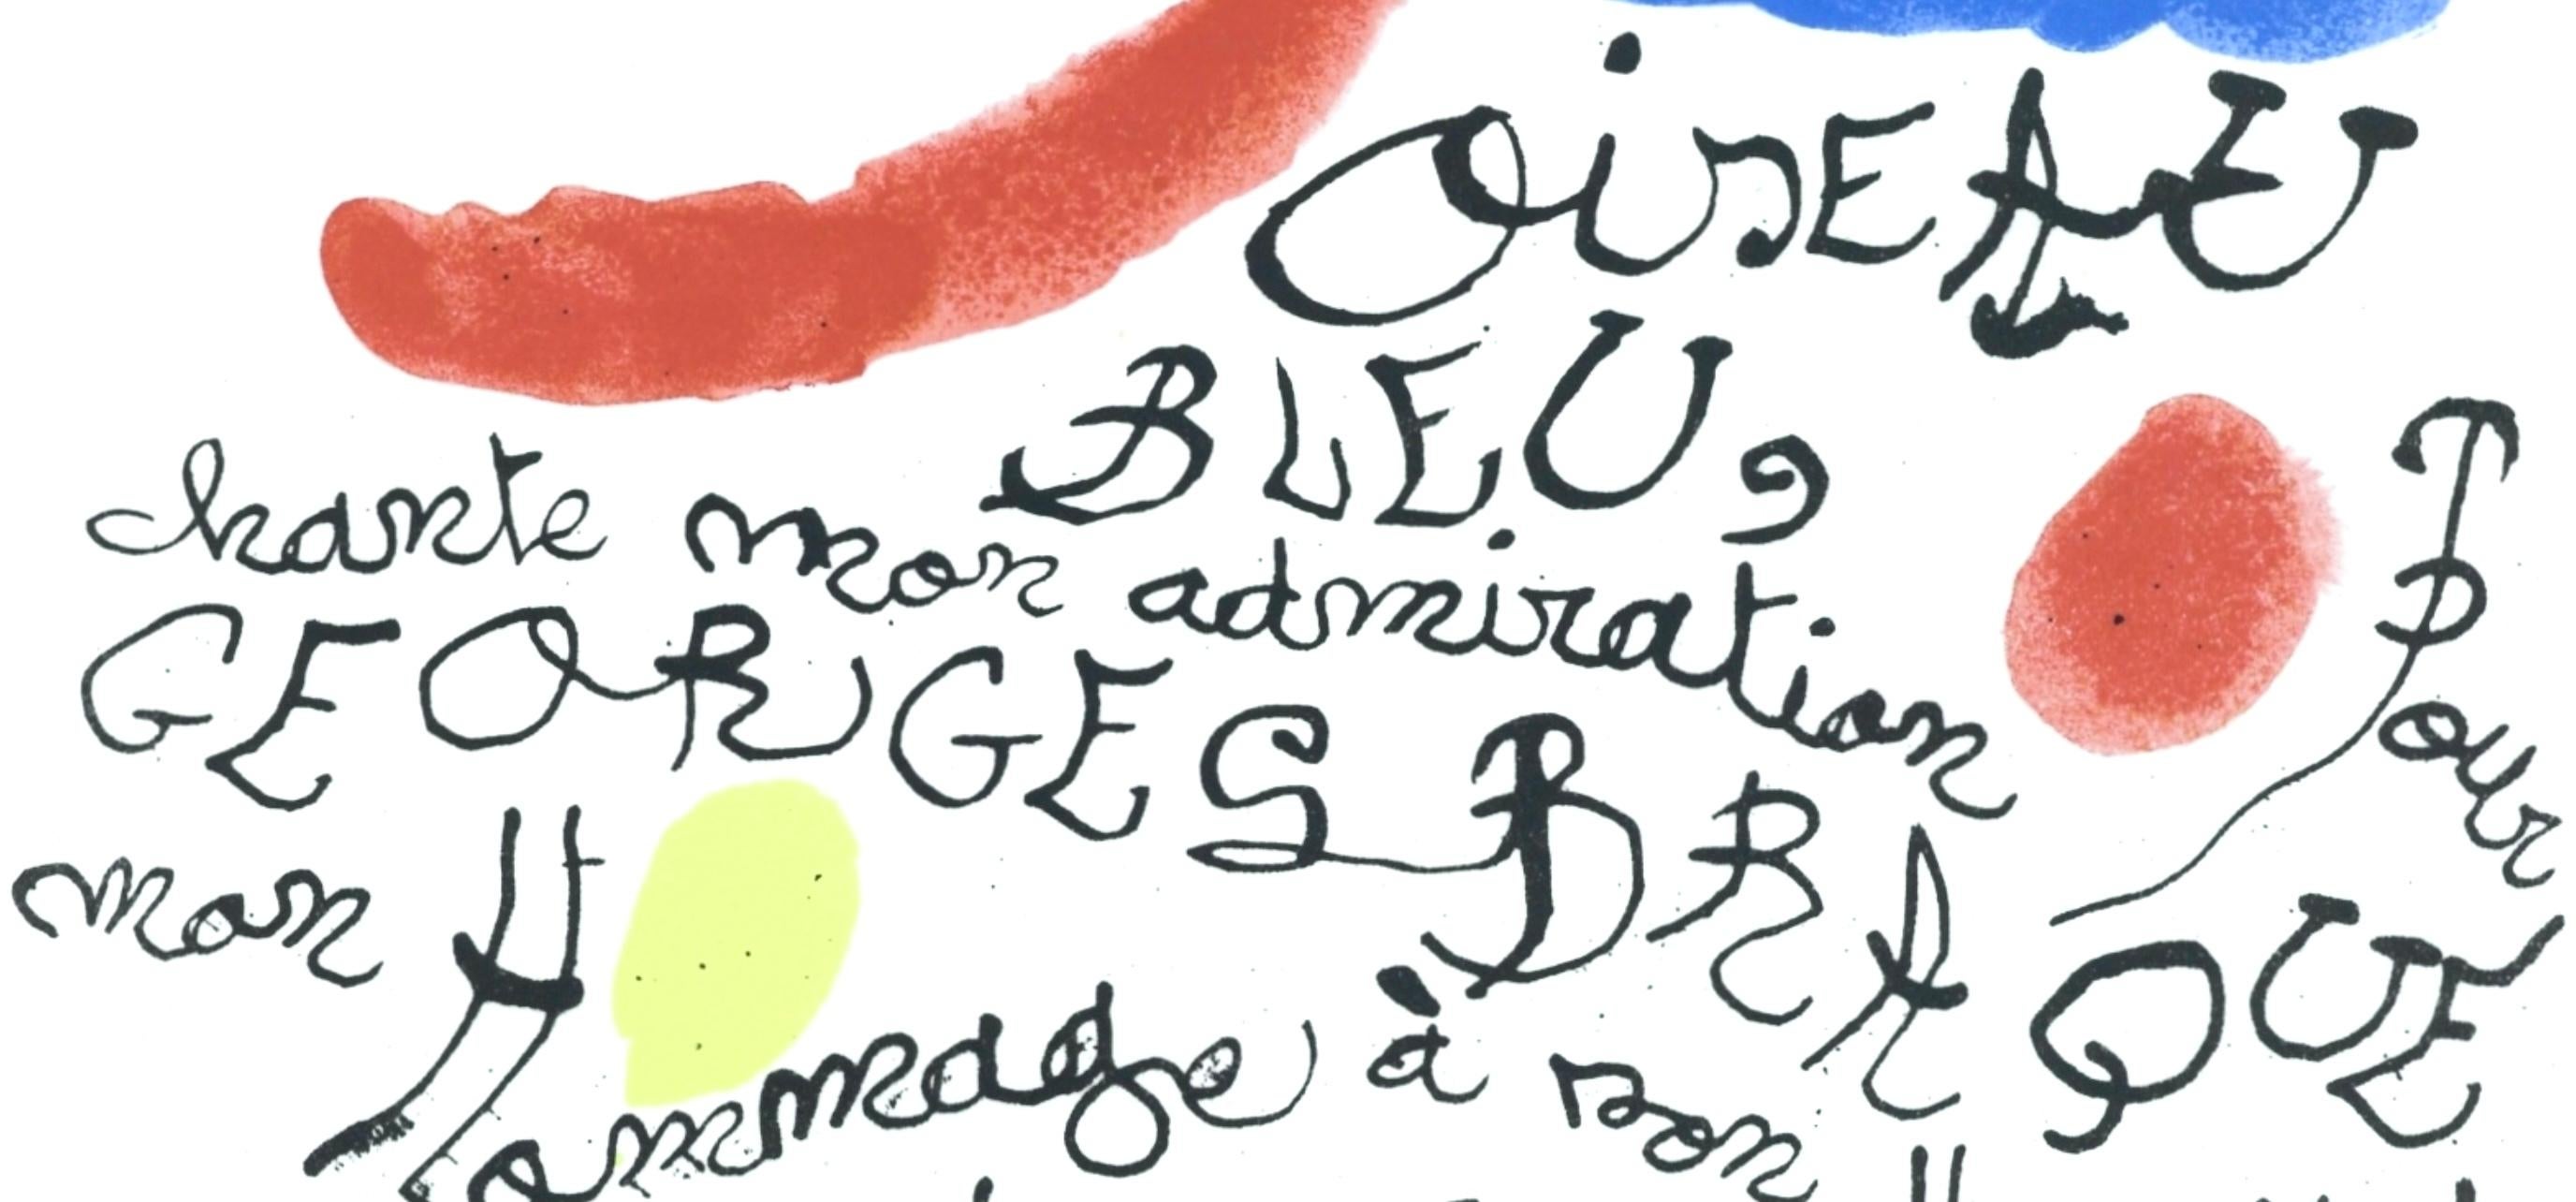 OiSEAU
BLEU,
chante mon admiration Pour
GEORGES BRAQUE
mon Hommage à son